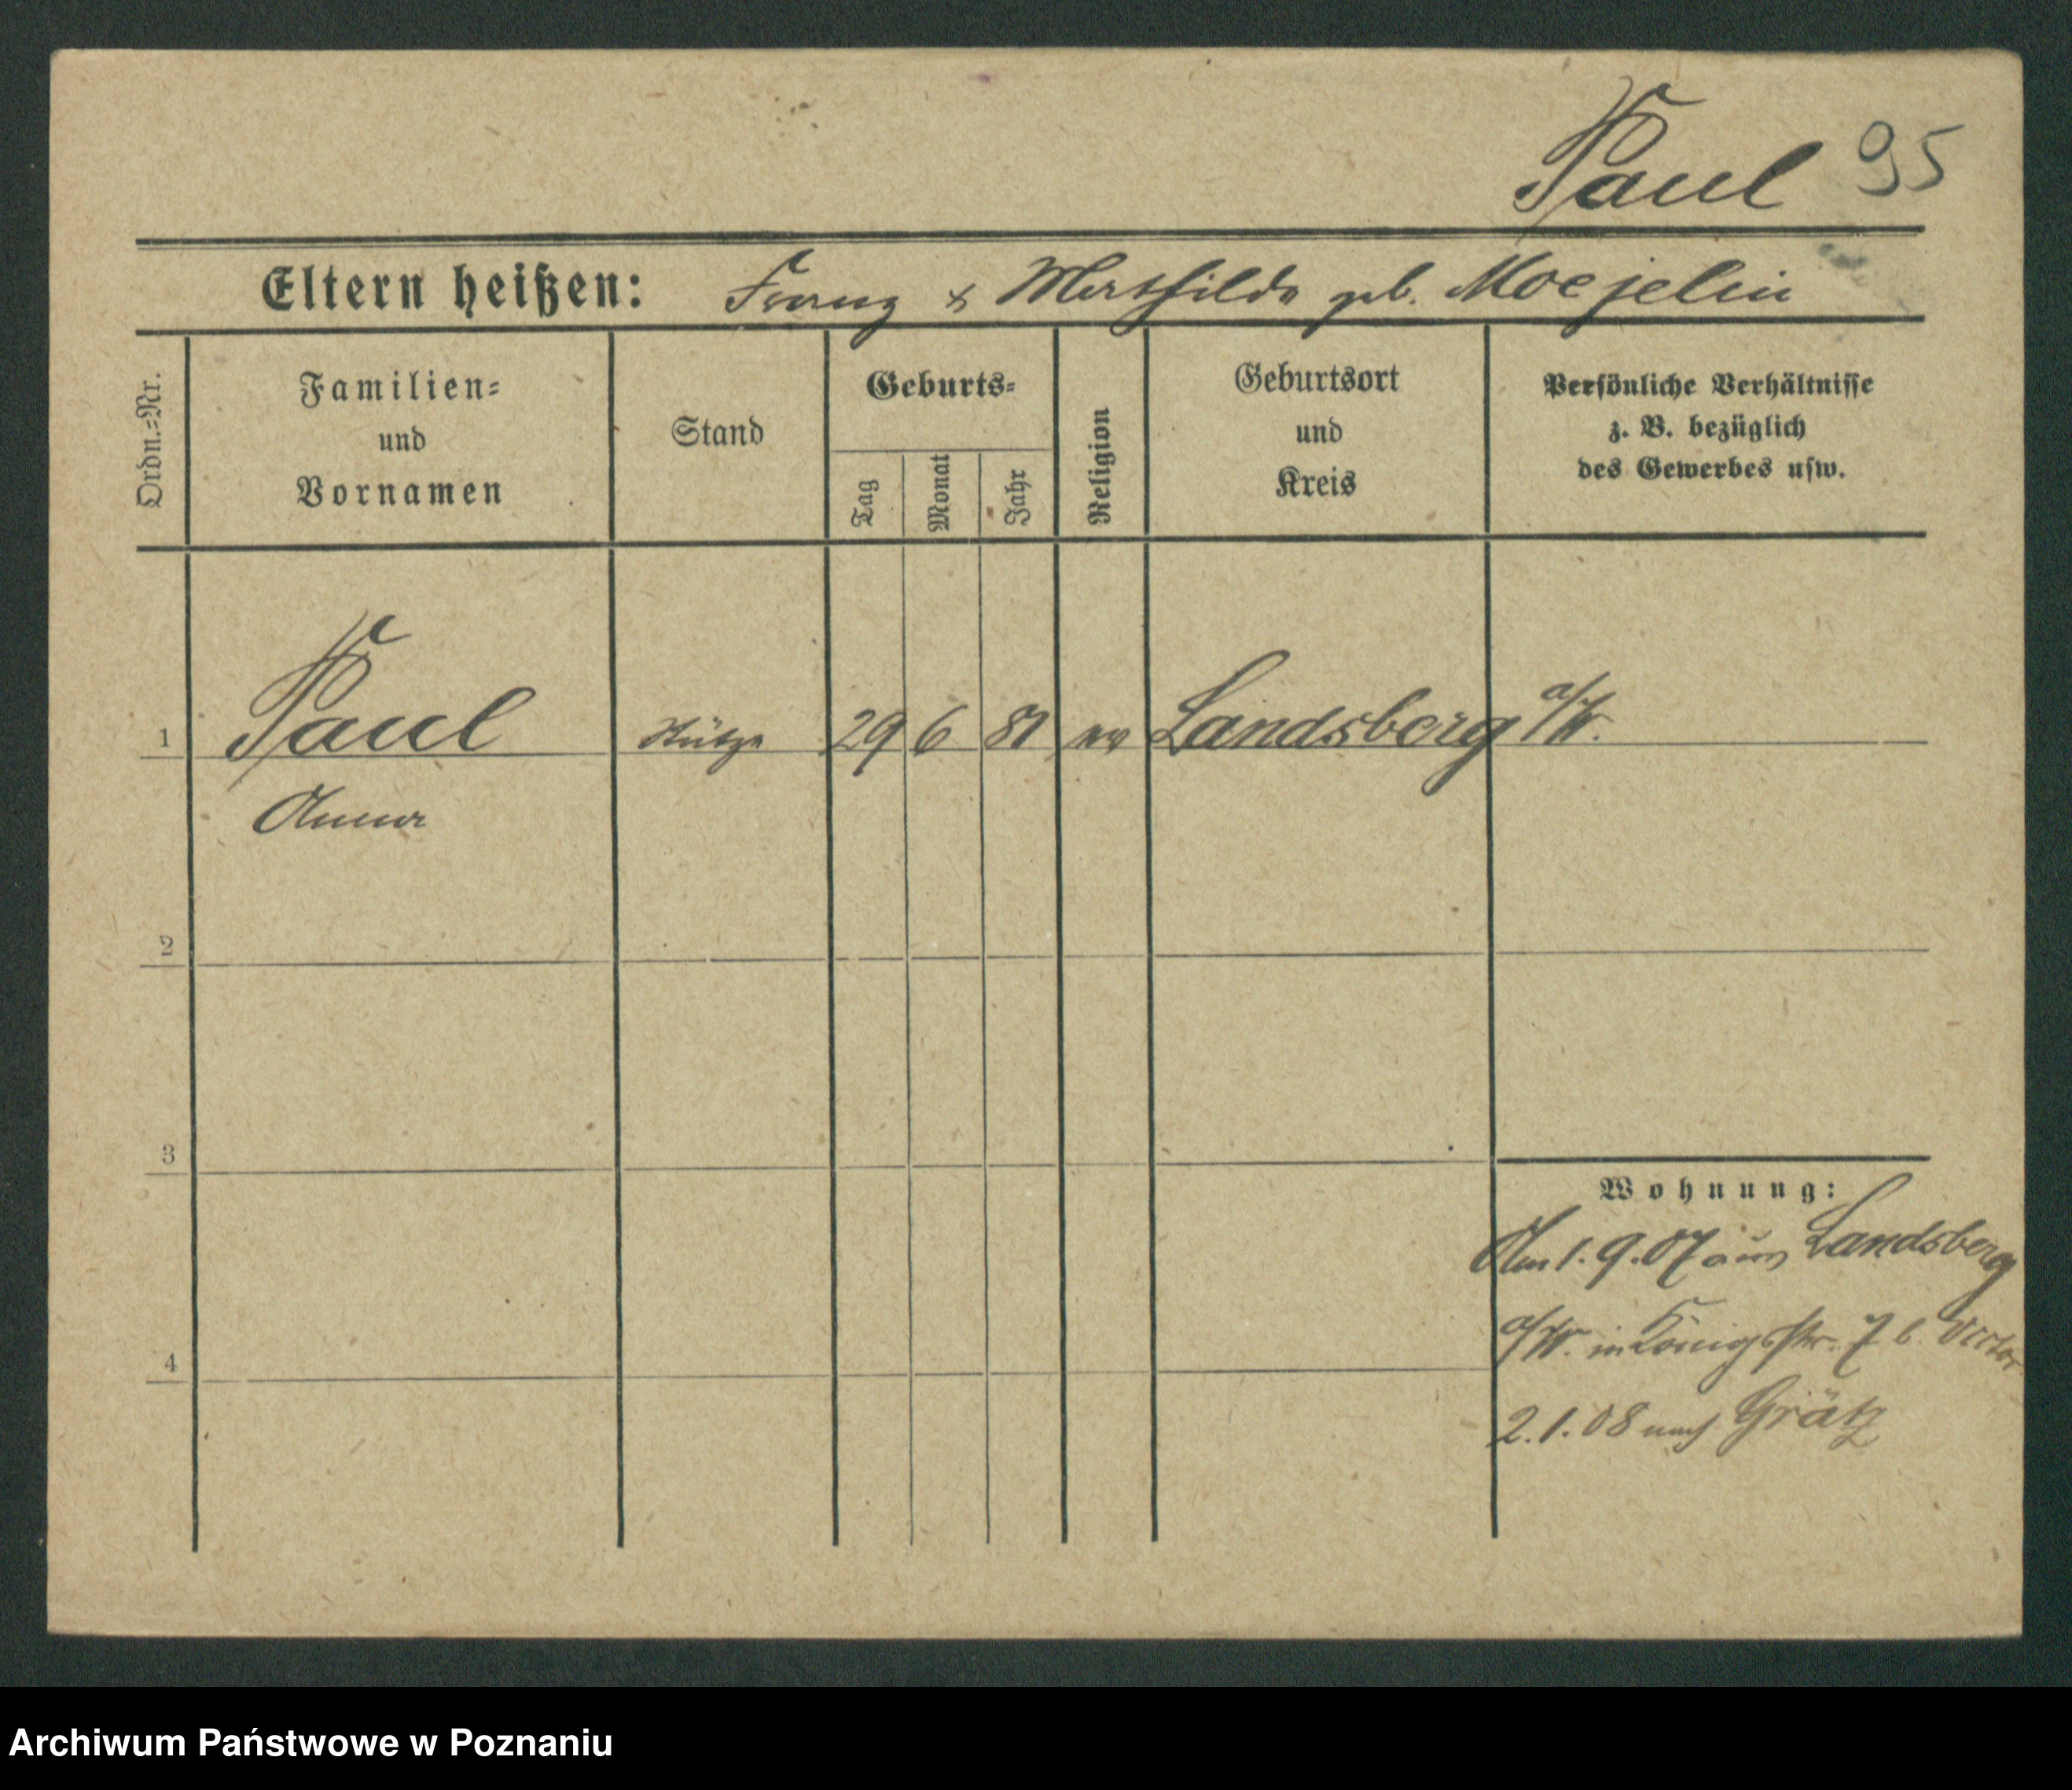 Paul 95
Eltern heißen: Franz & Mathilde geb. Moejelin
Ordn.-Nr.
Familien-
und
Vornamen
Stand
Geburts-
Tag
Monat
Jahr
Religion
Geburtsort
und
Kreis
Persönliche Verhältnisse
z. B. bezüglich
des Gewerbes usw.
1 Paul Stütze 29 6 81 ev Landsberg a/W.
Anna
2
3
4
Wohnung:
Am 1.9.07 aus Landsberg
a/W. in Königstr. 7 b. Victor
2.1.08 nach Grätz
Archiwum Państwowe w Poznaniu